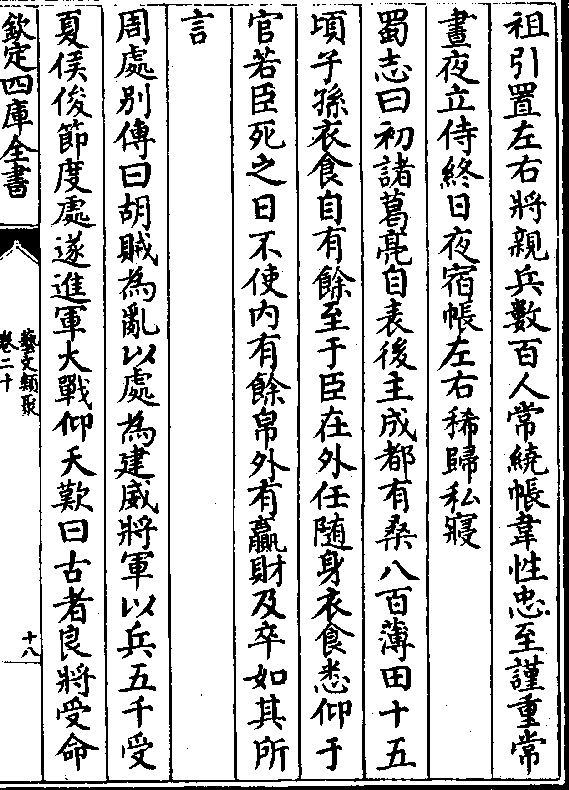 祖引置左右將親兵數百人常繞帳韋性忠至謹重常
晝夜立侍終日夜宿帳左右稀歸私寢
蜀志曰初諸葛亮自表後主成都有桑八百薄田十五
頃子孫衣食自有餘至于臣在外任隨身衣食悉仰于
官若臣死之日不使内有餘帛外有贏財及卒如其所
言
周處别傳曰胡賊為亂以處為建威將軍以兵五千受
夏侯俊節度處遂進軍大戰仰天歎曰古者良將受命
欽定四庫全書
藝文類聚
卷二十
十八